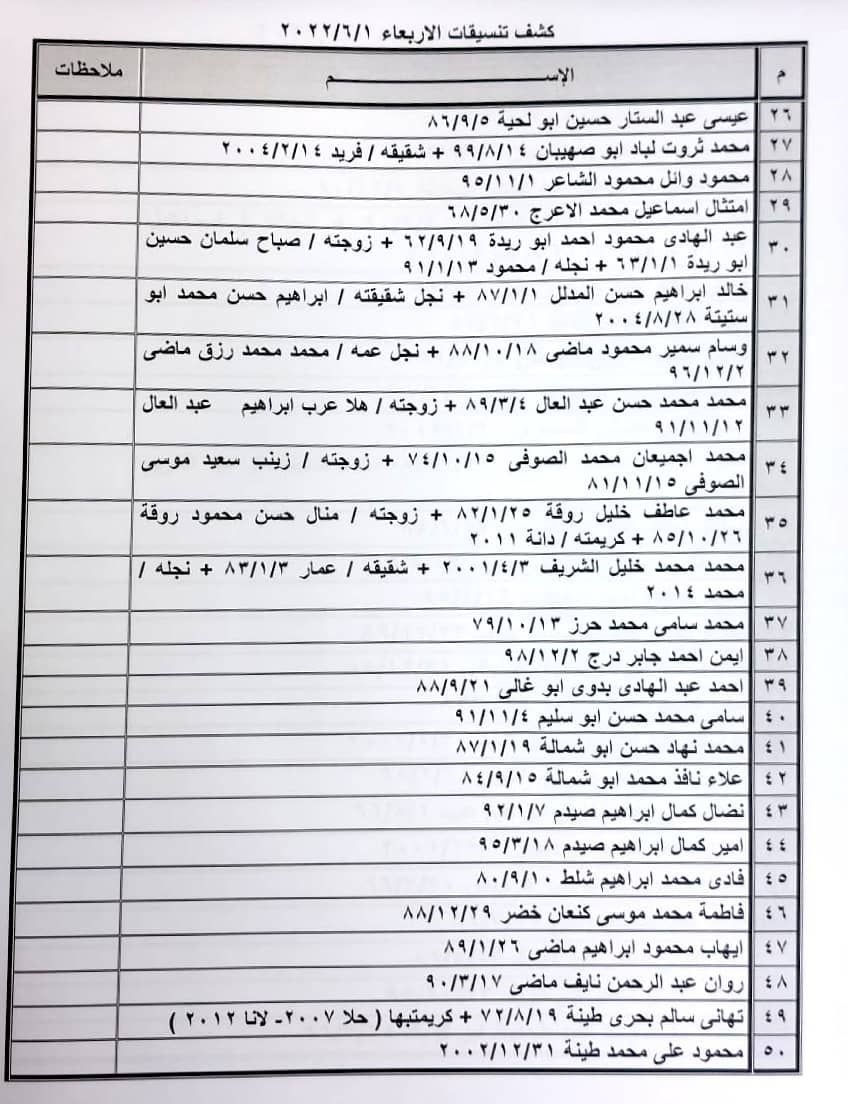 كشف تنسيقات الاربعاء ٢٠٢٢/٦/١
م الإســـــــــم ملاحظات
٢٦ عيسى عبد الستار حسين ابو لحية ٨٦/٩/٥
٢٧ محمد ثروت لباد ابو صهيبان ٩٩/٨/١٤ + شقيقه / فريد ٢٠٠٤/٢/١٤
٢٨ محمود وائل محمود الشاعر ٩٥/١١/١
٢٩ امتثال اسماعيل محمد الاعرج ٦٨/٥/٣٠
٣٠ عبد الهادى محمود احمد ابو ريدة ٦٢/٩/١٩ + زوجته / صباح سلمان حسين
ابو ريدة ٦٣/١/١ + نجله / محمود ٩١/١/١٣
٣١ خالد ابراهيم حسن المدلل ٨٧/١/١ + نجل شقيقته / ابراهيم حسن محمد ابو
ستيتة ٢٠٠٤/٨/٢٨
٣٢ وسام سمير محمود ماضى ٨٨/١٠/١٨ + نجل عمه / محمد محمد رزق ماضى
٩٦/١٢/٢
٣٣ محمد محمد حسن عبد العال ٨٩/٣/٤ + زوجته / هلا عرب ابراهيم عبد العال
٩١/١١/١٢
٣٤ محمد اجميعان محمد الصوفى ٧٤/١٠/١٥ + زوجته / زينب سعيد موسى
الصوفى ٨١/١١/١٥
٣٥ محمد عاطف خليل روقة ٨٢/١/٢٥ + زوجته / منال حسن محمود روقة
٨٥/١٠/٢٦ + كريمته / دانة ٢٠١١
٣٦ محمد محمد خليل الشريف ٢٠٠١/٤/٣ + شقيقه / عمار ٨٣/١/٣ + نجله /
محمد ٢٠١٤
٣٧ محمد سامى محمد حرز ٧٩/١٠/١٣
٣٨ ايمن احمد جابر درج ٩٨/١٢/٢
٣٩ احمد عبد الهادى بدوى ابو غالى ٨٨/٩/٢١
٤٠ سامى محمد حسن ابو سليم ٩١/١١/٤
٤١ محمد نهاد حسن ابو شمالة ٨٧/١/١٩
٤٢ علاء نافذ محمد ابو شمالة ٨٤/٩/١٥
٤٣ نضال كمال ابراهيم صيدم ٩٢/١/٧
٤٤ امير كمال ابراهيم صيدم ٩٥/٣/١٨
٤٥ فادى محمد ابراهيم شلط ٨٠/٩/١٠
٤٦ فاطمة محمد موسى كنعان خضر ٨٨/١٢/٢٩
٤٧ ايهاب محمود ابراهيم ماضى ٨٩/١/٢٦
٤٨ روان عبد الرحمن نايف ماضى ٩٠/٣/١٧
٤٩ تهانى سالم بحرى طينة ٧٢/٨/١٩ + كريمتبها ( حلا ٢٠٠٧- لانا ٢٠١٢ )
٥٠ محمود على محمد طينة ٢٠٠٢/١٢/٣١